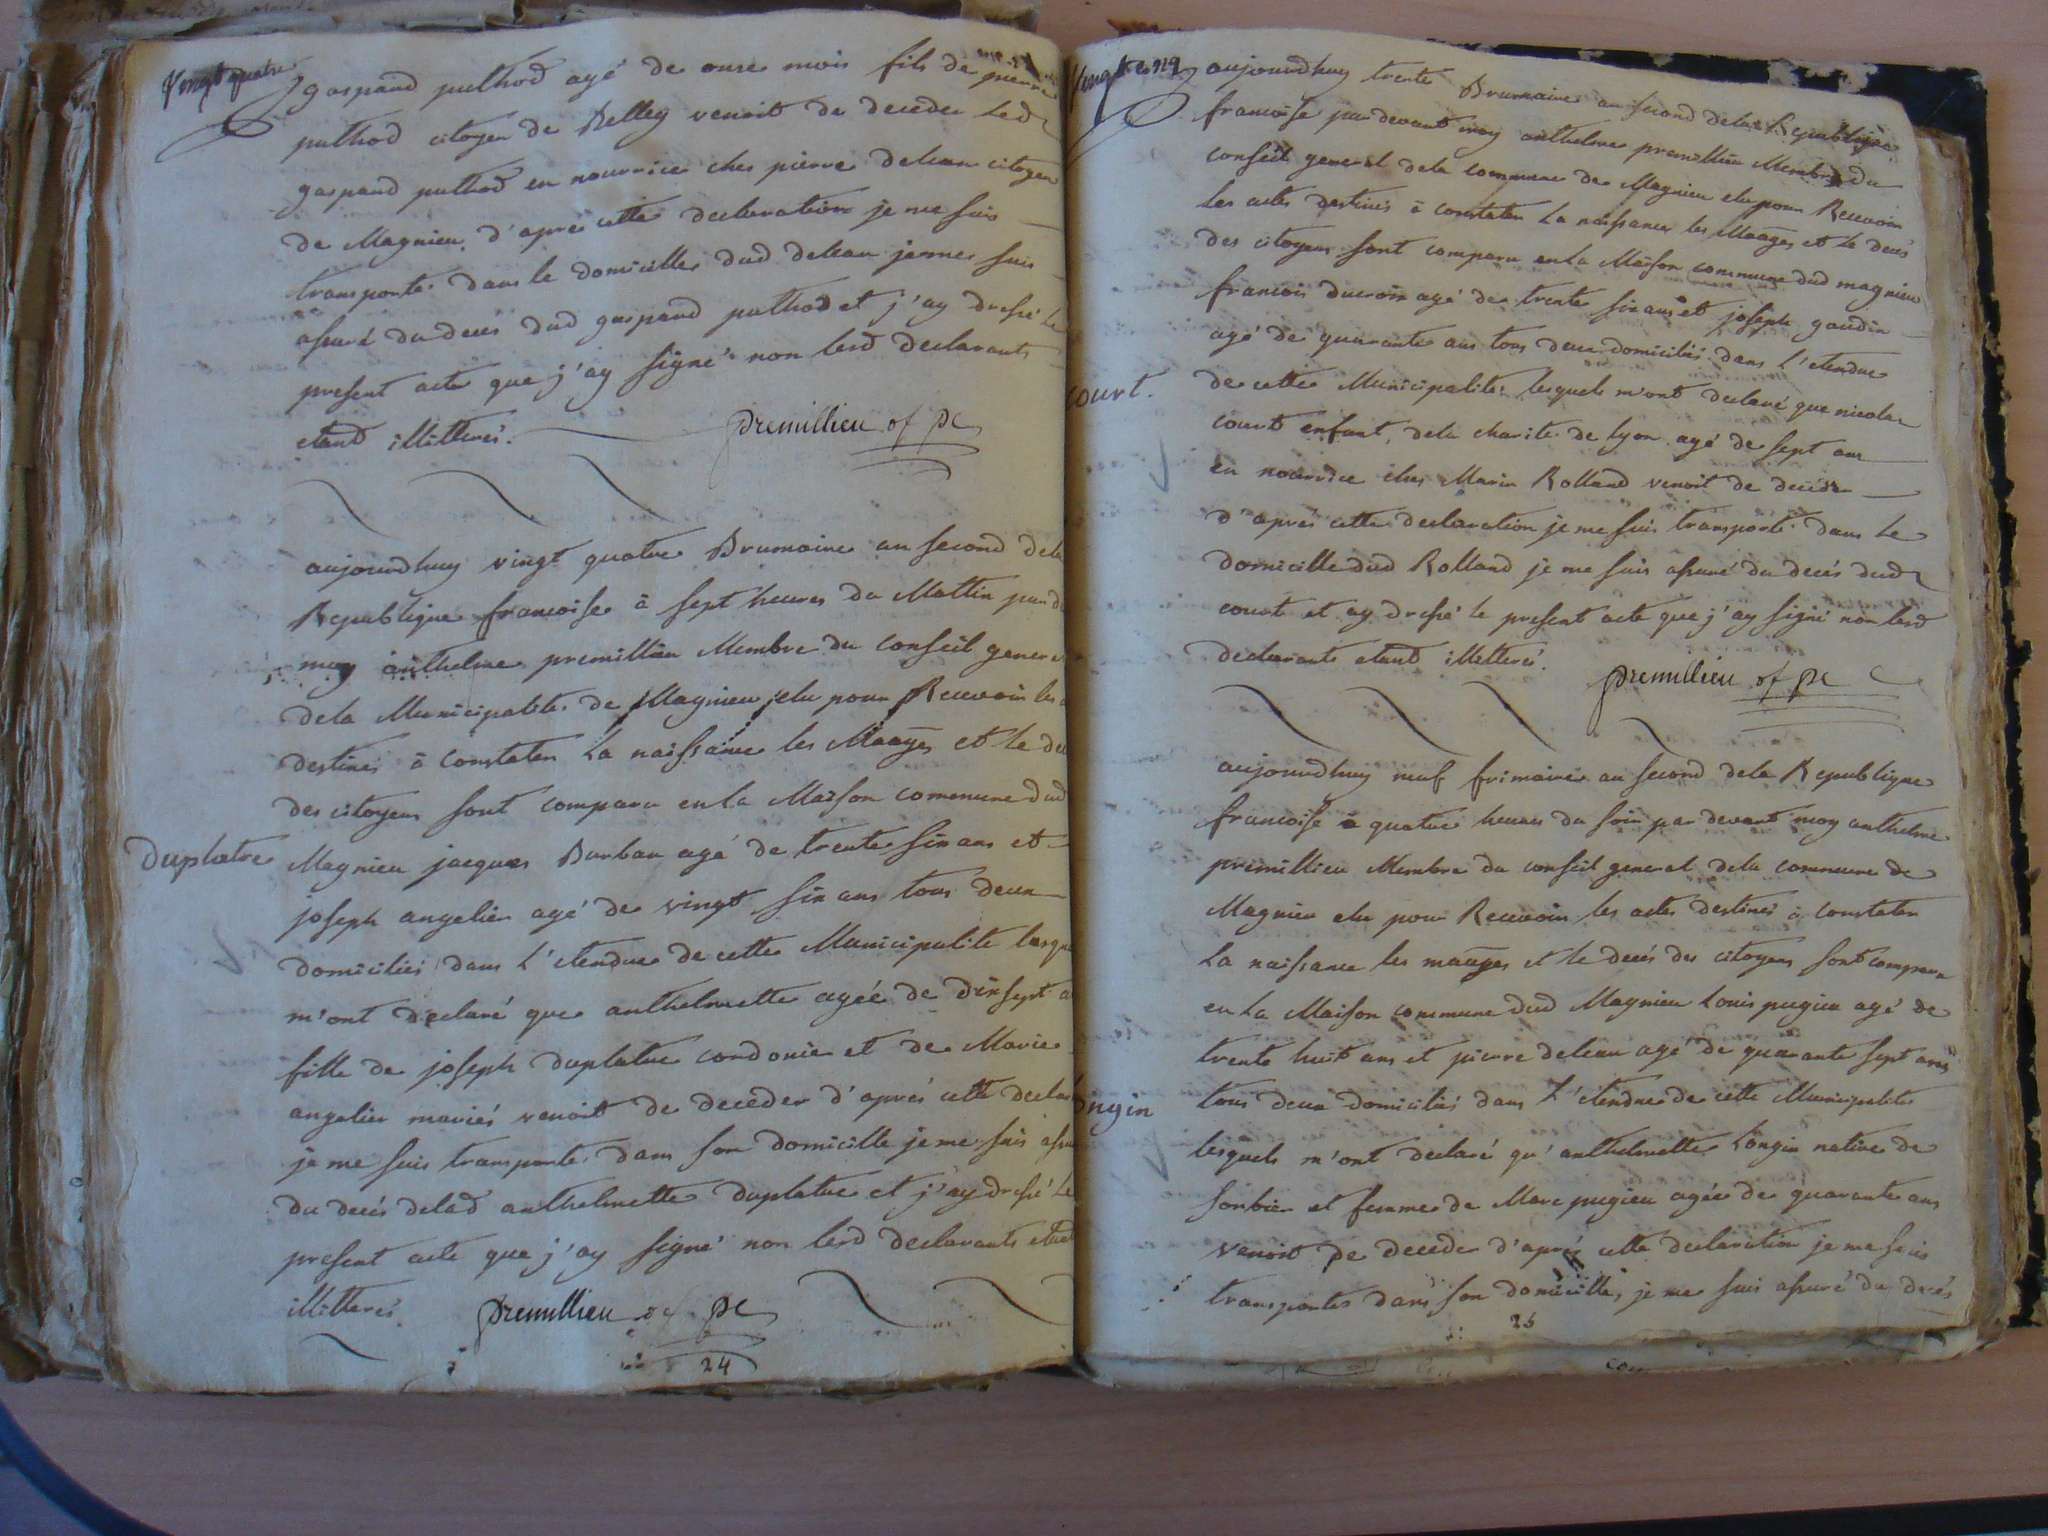 Vingt quatre
gaspard puthod agé de onze mois fils de pierre
puthod citoyen de Belley venoit de deceder led
gaspard puthod en nourrice ches pierre deleau citoyen
de Magnieu, d'aprés cette declaration je me suis
transporté dans le domicille dud deleau je me suis
assuré du decés dud gaspard puthod et j'ay dressé le
present acte que j'ay signé non lesd declarants
etant illitterés.
premillieu of pc
aujourdhuy vingt quatre Brumaire an second dela
Republique francoise à sept heures du Mattin par d
moy anthelme premillieu Membre du conseil gener
dela Municipalité de Magnieu elu pour Recevoir les
destinés à constater la naissance les Mariages et le de
des citoyens sont comparu en la Maison commune dud
Duplatre
Magnieu jacques Burbau agé de trente six ans et
joseph angelier agé de vingt six ans tous deux
domiciliés dans l'etendue de cette Municipalité lesqu
m'ont declaré que anthelmette agée de dixsept a
fille de joseph duplatre cordonier et de Marie
angelier mariés venoit de deceder d'aprés cette declar
je me suis transporté dans son domicille je me suis assu
du decés delad anthelmette duplatre et j'ay dressé le
present acte que j'ay signé non lesd declarants etant
illitterés.
premillieu of pc
24
Vingt cinq
aujourdhuy trente Brumaire an second dela Republique
francoise par devant moy anthelme premillieu Membre du
conseil general dela commune de Magnieu elu pour Recevoir
les actes destinés à constater la naissance les Mariages et le decés
des citoyens sont comparu en la Maison commune dud magnieu
francois ducroix agé de trente six ans et joseph gaudin
agé de quarante ans tous deux domiciliés dans l'etendue
court.
de cette Municipalité lesquels m'ont declaré que nicolas
court enfant dela charité de lyon agé de sept ans
en nourrice ches Marin Rolland venoit de deceder
d'aprés cette declaration je me suis transporté dans le
domicille dud Rolland je me suis assuré du decés dud
court et ay dressé le present acte que j'ay signé non lesd
declarants etant illitterés.
premillieu of pc
aujourdhuy neuf frimaire an second dela Republique
francoise à quatre heures du soir par devant moy anthelme
premillieu Membre du conseil general dela commune de
Magnieu elu pour Recevoir les actes destinés à constater
la naissance les mariages et le decés des citoyens sont comparu
en la Maison commune dud Magnieu Louis pugieu agé de
trente huit ans et pierre deleau agé de quarante sept ans
ongin
tous deux domiciliés dans l'etendue de cette Municipalité
lesquels m'ont declaré qu'anthelmette Longin native de
sorbier et femme de Marc pugieu agée de quarante ans
venoit de deceder d'aprés cette declaration je me suis
transporté dans son domicille, je me suis assuré du decés
25